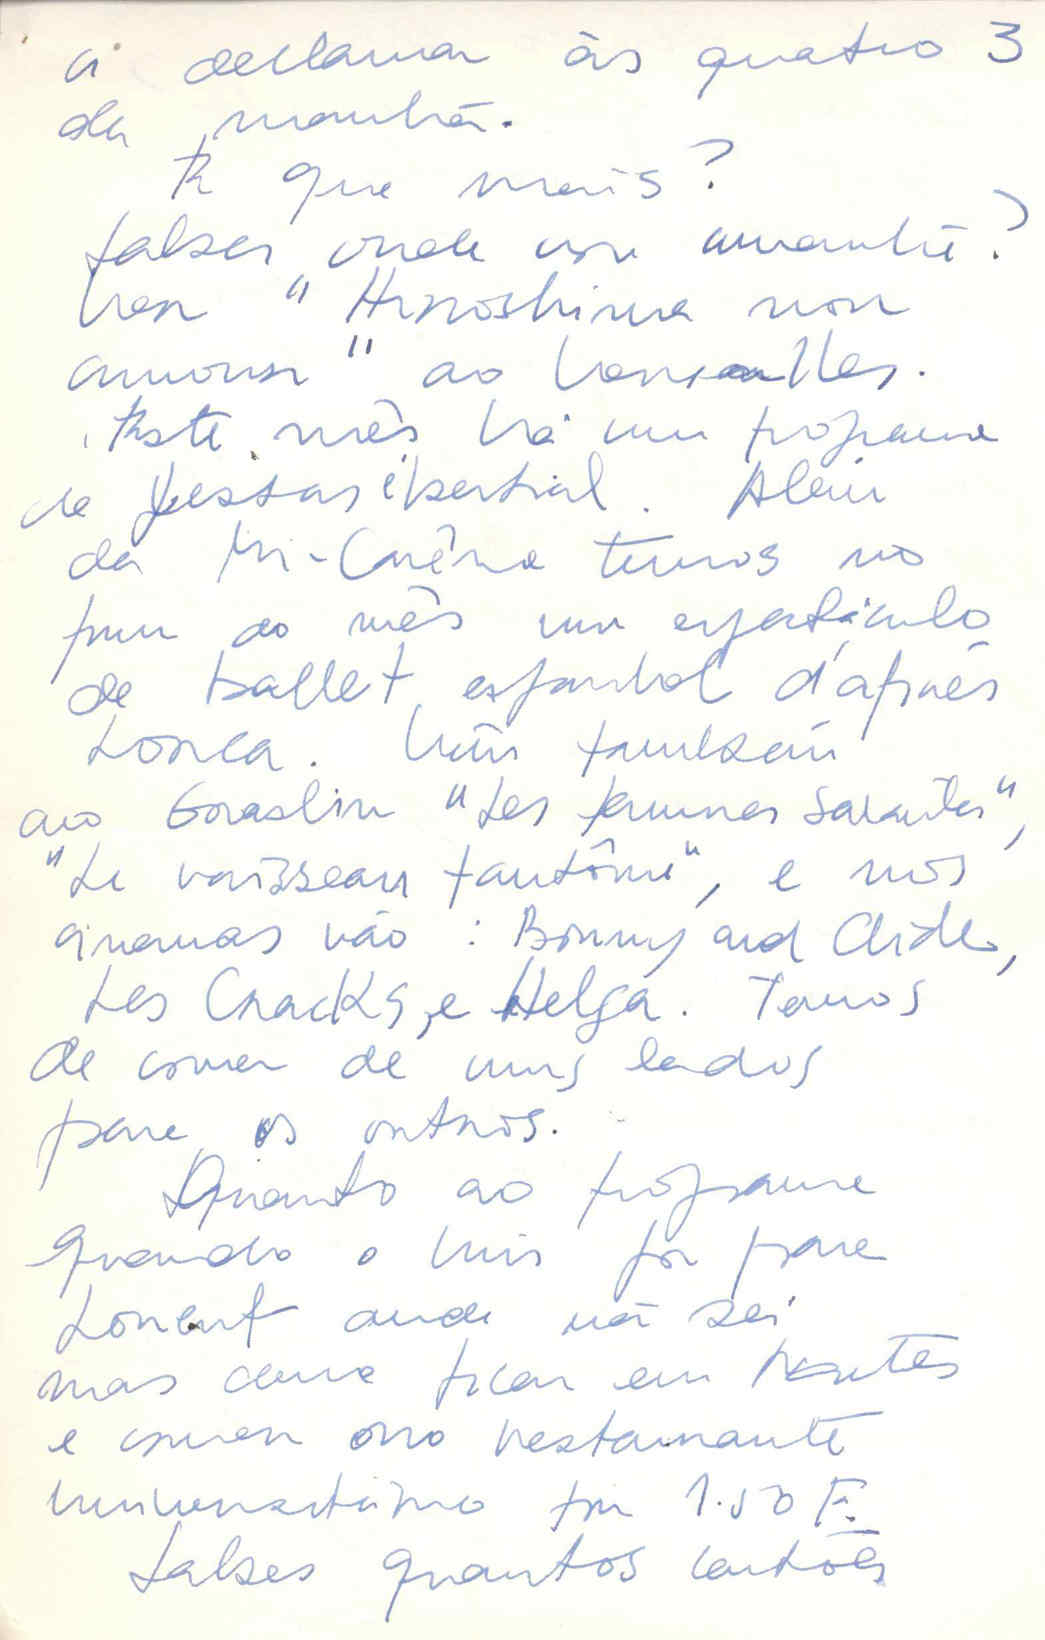 a declamar às quatro 3
da manhã.
E que mais?
Sabes onde vou amanhã?
Ver "Hiroshima mon
amour" ao Versailles.
Este mês há um programa
de festas bestial. Além
da Mi-Carême temos no
fim do mês um espectáculo
de ballet espanhol d'après
Lorca. Vêm também
ao Graslin "Les femmes savantes",
"Le vaisseau fantôme", e nos
cinemas vão: Bonny and Clide,
Les Cracks, e Helga. Temos
de correr de uns lados
para os outros.
Quanto ao programa
quando o Luis for para
Lorient ainda não sei
mas devo ficar em Nantes
e comer no restaurante
universitário por 1.50 F.
Sabes quantos cartões